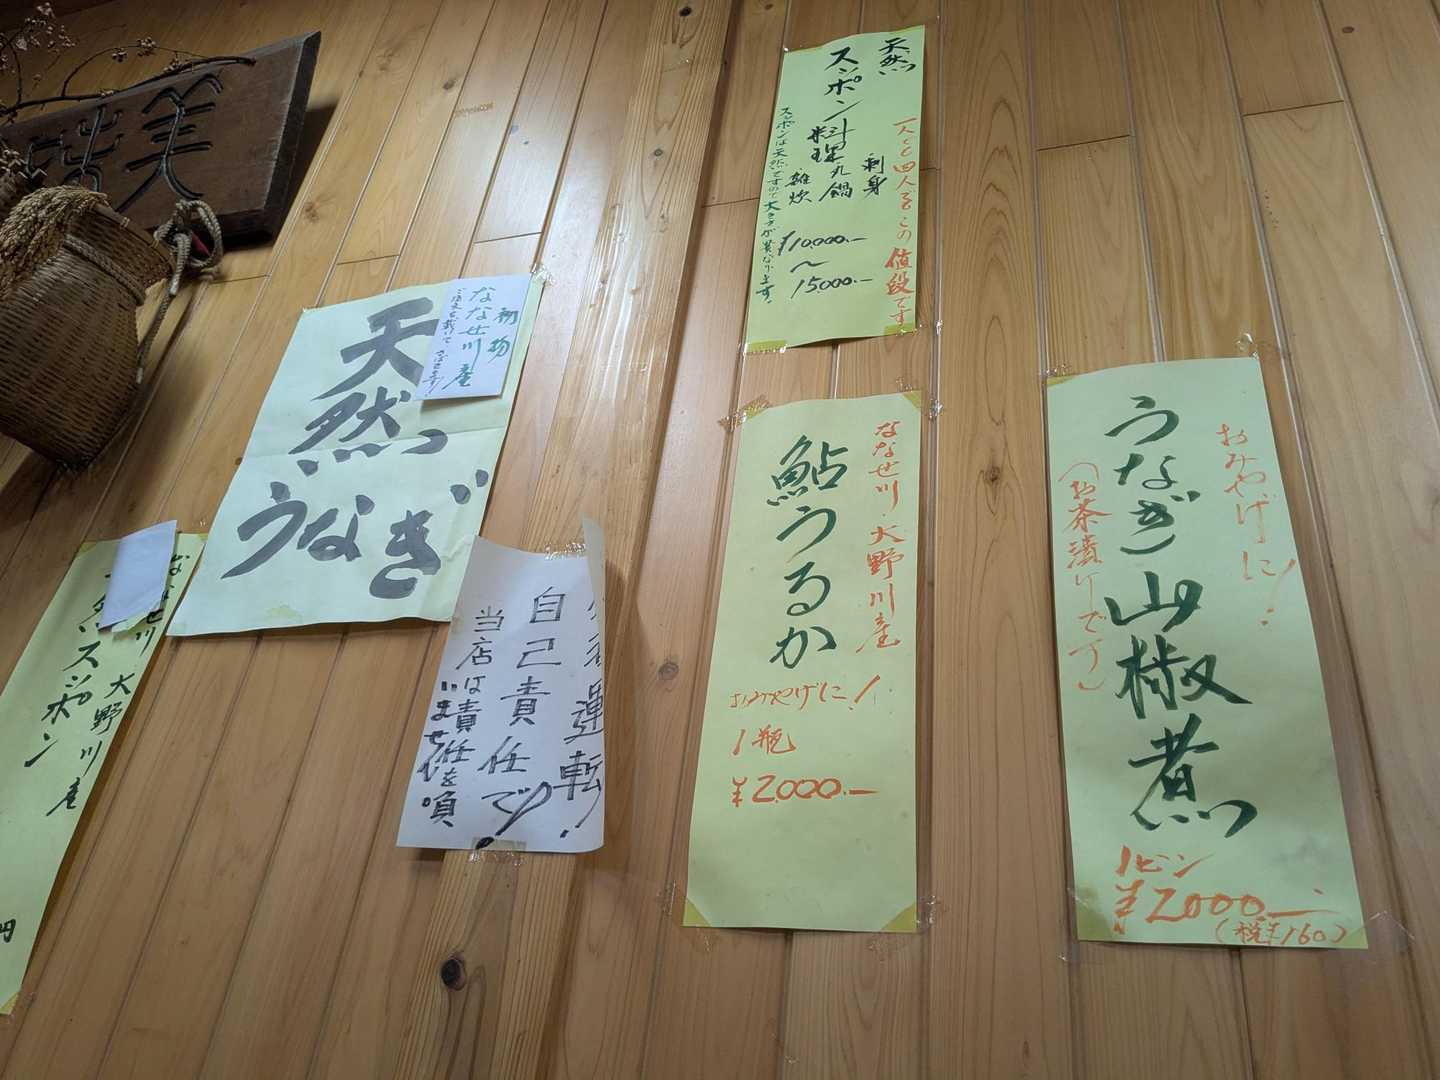 天然
スッポン料理
刺身
丸鍋
雑炊
一人〜四人でもこの値段です
¥10,000.—
〜
15,000.—
スッポンは天然ですので大きさが異なります。
おみやげに!
うなぎ山椒煮
(お茶漬けです)
1ビン
¥2000.—
(税¥160)
ななせ川・大野川産
鮎うるか
おみやげに!
1瓶
¥2,000.—
初物
ななせ川産
天然
うなぎ
運転
自己責任で。
当店は責任を負
いません。
ななせ川
大野川産
スッポン
円
美